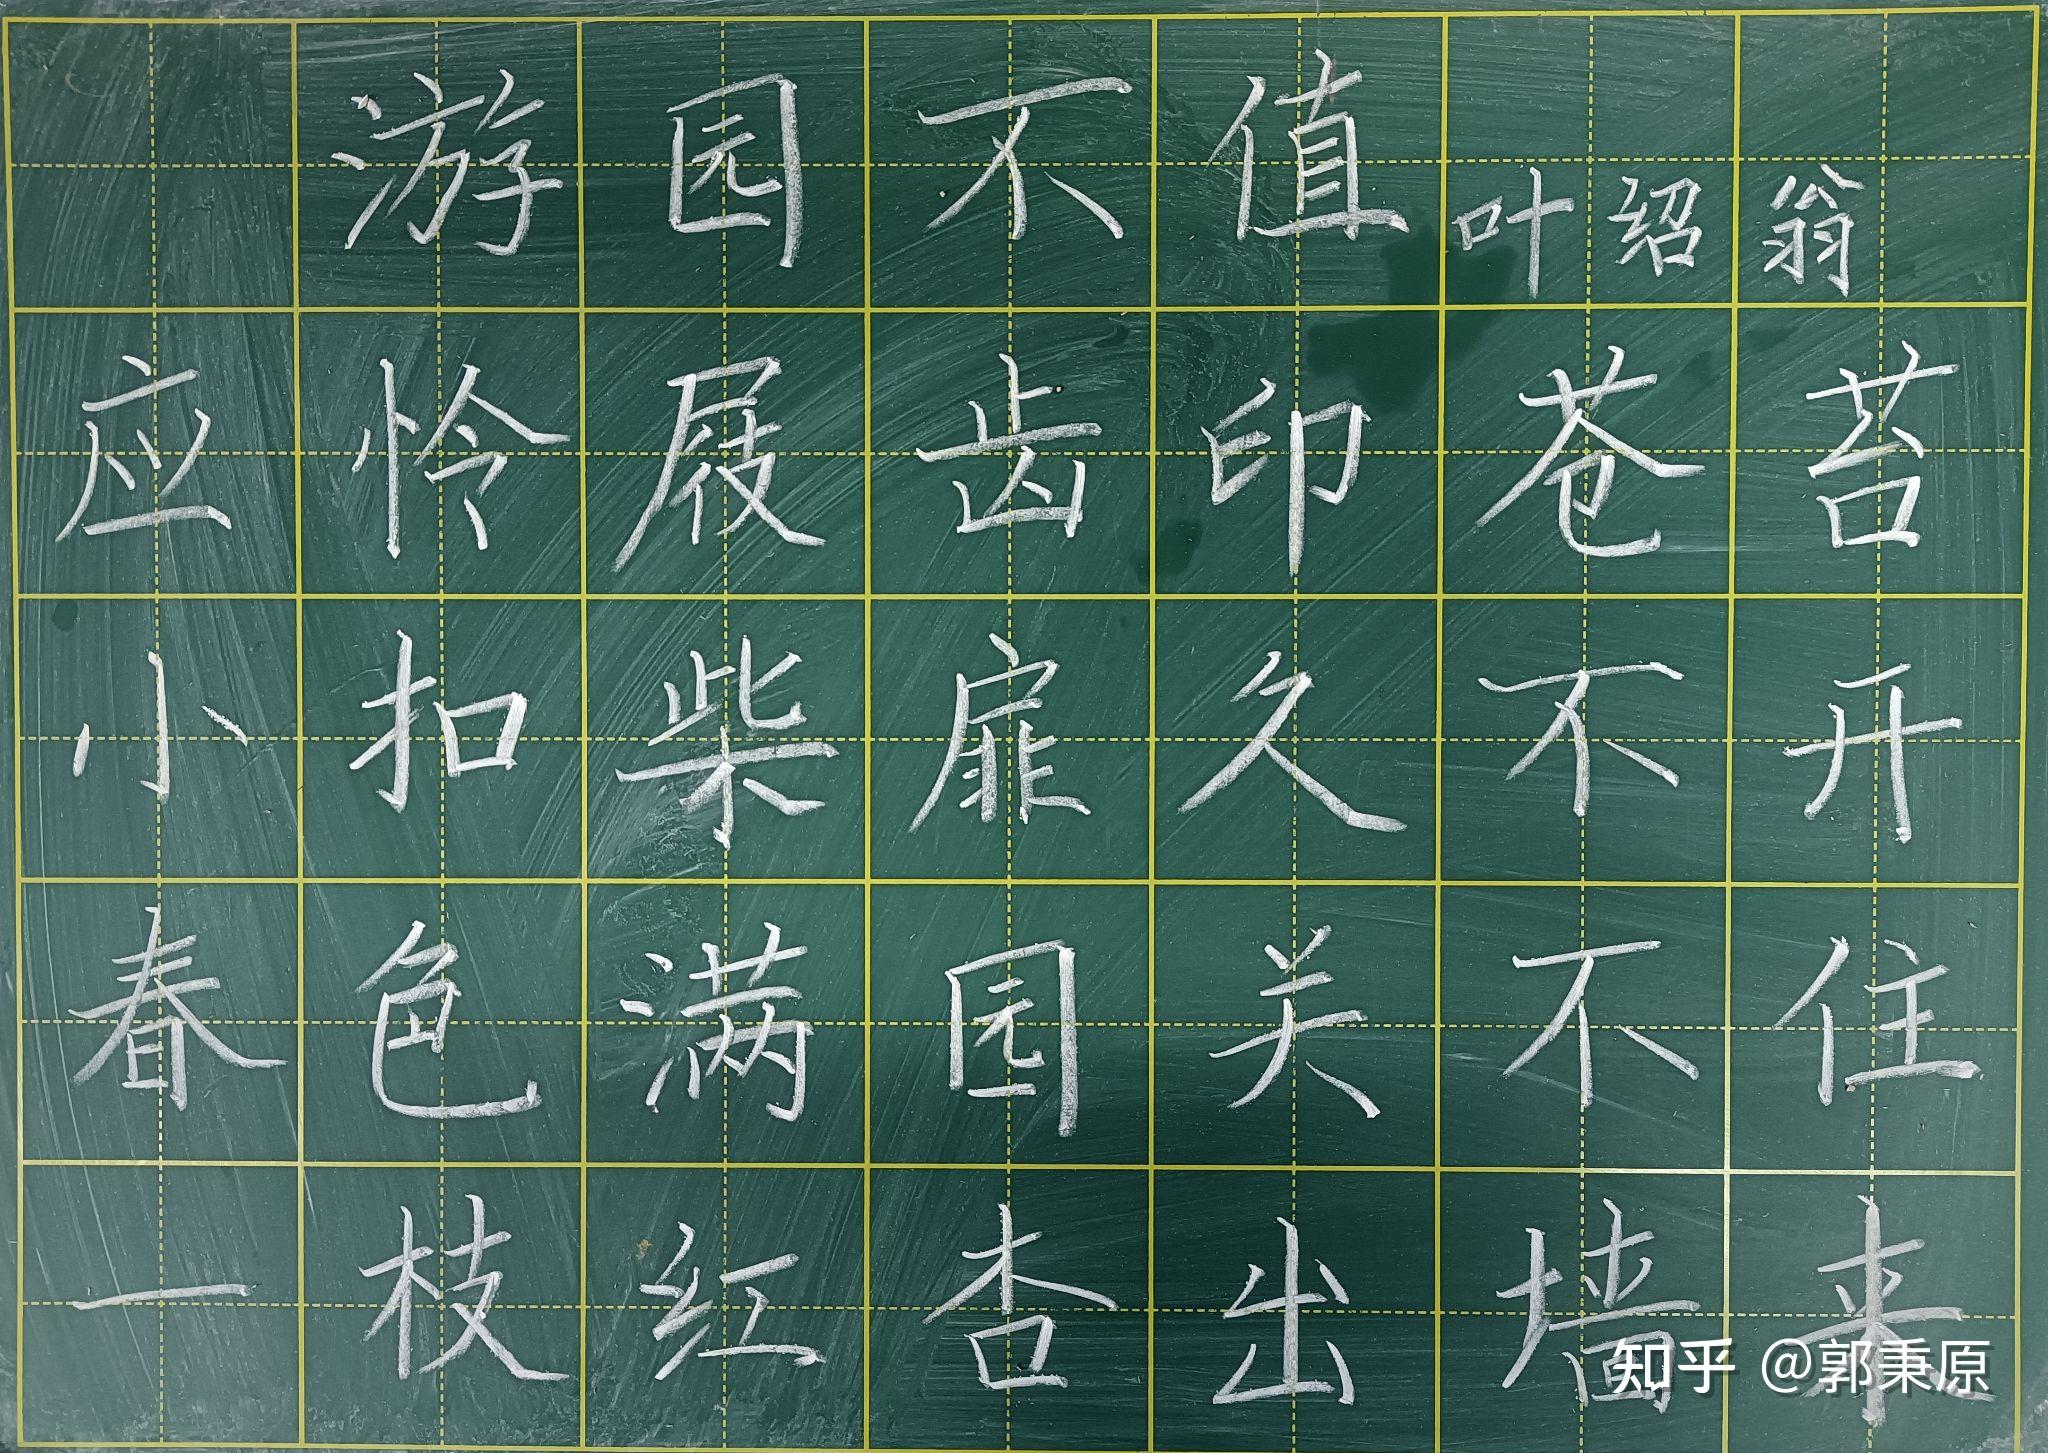 游园不值 叶绍翁
应怜屐齿印苍苔
小扣柴扉久不开
春色满园关不住
一枝红杏出墙来
知乎 @郭秉原